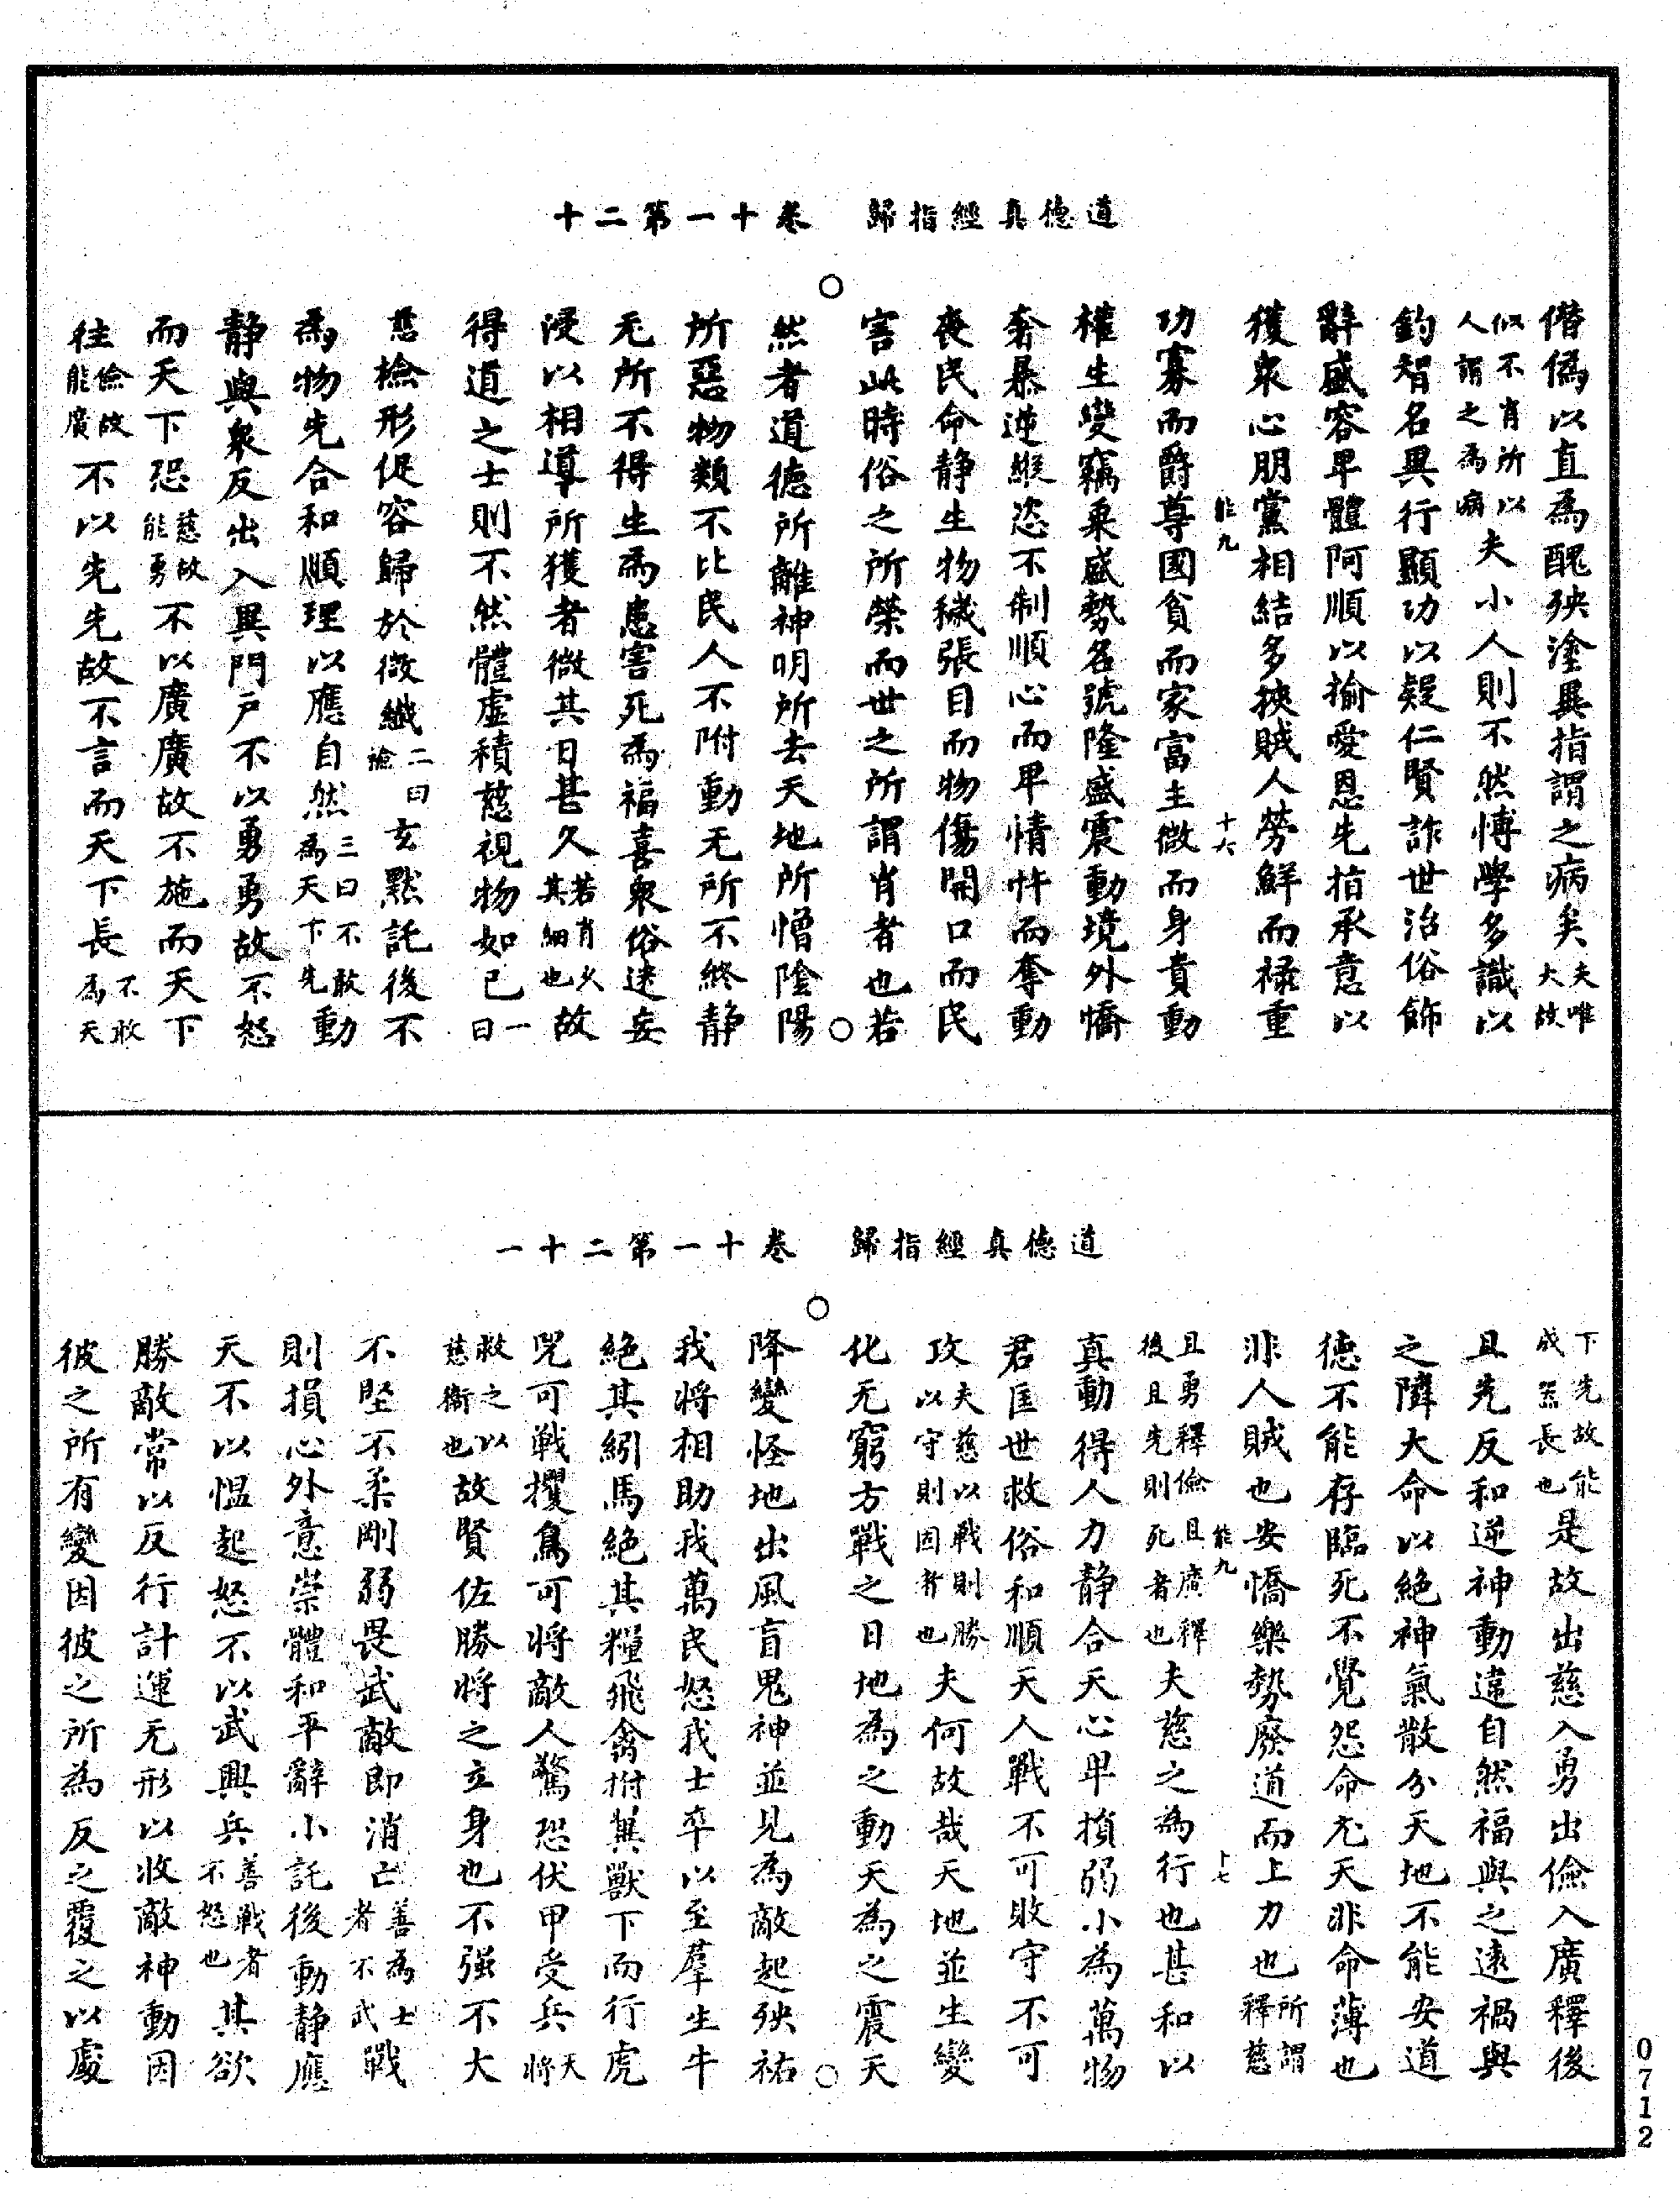 道德真經指歸　卷十一第二十
僭偽以直為醜殃塗異指謂之病矣夫唯大故
似不肖所以人謂之為病夫小人則不然博學多識以
釣智名異行顯功以疑仁賢詐世治俗飾
辭盛容卑體阿順以揄愛恩先指承意以
獲衆心朋黨相結多挾賊人勞鮮而祿重
能九　十六
功寡而爵尊國貧而家富主微而身貴動
權生變竊乗盛勢名號隆盛震動境外憍
奢暴逆縱恣不制順心而卑情忤而奪動
喪民命静生物穢張目而物傷開口而民
害此時俗之所榮而世之所謂肖者也若
然者道德所離神明所去天地所憎陰陽
所惡物類不比民人不附動无所不終静
无所不得生為患害死為福喜衆俗迷妄
浸以相導所獲者微其日甚久若肖久其細也故
得道之士則不然體虛積慈視物如已一曰
慈檢形促容歸於微纖二曰儉玄默託後不
為物先合和順理以應自然三曰不敢為天下先動
静與衆反出入異門戶不以勇勇故不怒
而天下恐慈故能勇不以廣廣故不施而天下
往儉故能廣不以先先故不言而天下長不敢為天
道德真經指歸　卷十一第二十一
下先故能成器長也是故出慈入勇出儉入廣釋後
且先反和逆神動違自然福與之遠禍與
之隣大命以絶神氣散分天地不能安道
德不能存臨死不覺怨命尤天非命薄也
非人賊也安憍樂勢廢道而上力也所謂釋慈
能九　十七
且勇釋儉且廣釋後且先則死者也夫慈之為行也甚和以
真動得人力静合天心卑損弱小為萬物
君匡世救俗和順天人戰不可敗守不可
攻夫慈以戰則勝以守則固者也夫何故哉天地並生變
化无窮方戰之日地為之動天為之震天
降變怪地出風盲鬼神並見為敵起殃祐
我將相助我萬民怒我士卒以至羣生牛
絶其紖馬絶其糧飛禽拊翼獸下而行虎
兕可戰攫鳥可將敵人驚恐伏甲受兵天將
救之以慈衛也故賢佐勝將之立身也不强不大
不堅不柔剛弱畏武敵即消亡善為士者不武戰
則損心外意崇體和平辭小託後動静應
天不以愠起怒不以武興兵善戰者不怒也其欲
勝敵常以反行計運无形以收敵神動因
彼之所有變因彼之所為反之覆之以處
0712